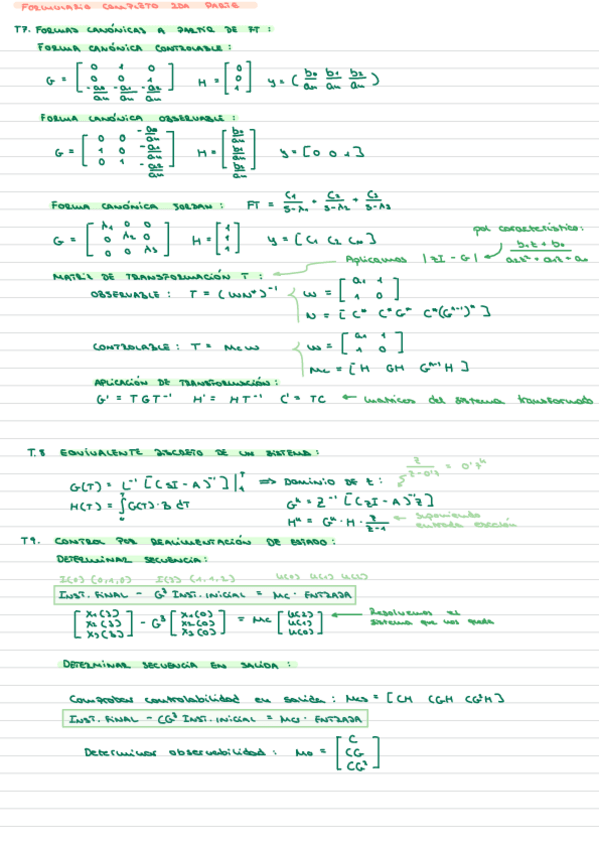 FORMULARIO COMPLETO 2DA PARTE
T7. FORMAS CANÓNICAS A PARTIR DE FT:
FORMA CANÓNICA CONTROLABLE:
G = [ 0 1 0 ; 0 0 1 ; -a0/an -a1/an -a2/an ] H = [ 0 ; 0 ; 1 ] y = ( b0/an b1/an b2/an )
FORMA CANÓNICA OBSERVABLE:
G = [ 0 0 -a0/an ; 1 0 -a1/an ; 0 1 -a2/an ] H = [ b0/an ; b1/an ; b2/an ] y = [0 0 1]
FORMA CANÓNICA JORDAN: FT = C1/(s-λ1) + C2/(s-λ2) + C3/(s-λ3)
G = [ λ1 0 0 ; 0 λ2 0 ; 0 0 λ3 ] H = [ 1 ; 1 ; 1 ] y = [C1 C2 Cn]
pol característico:
Aplicamos |zI - G| (b1z + b0)/(a2z² + a1z + a0)
MATRIZ DE TRANSFORMACIÓN T:
OBSERVABLE: T = (WN*)⁻¹ W = [ a1 1 ; 1 0 ]
N = [ C* C*G* C*(Gⁿ⁻¹)* ]
CONTROLABLE: T = Mc W W = [ a1 1 ; 1 0 ]
Mc = [ H GH Gⁿ⁻¹H ]
APLICACIÓN DE TRANSFORMACIÓN:
G' = TGT⁻¹ H' = HT⁻¹ C' = TC ← matrices del sistema transformado
T.8 EQUIVALENTE DISCRETO DE UN SISTEMA:
z/(z-0'7) = 0'7ᵏ
G(T) = L⁻¹ [(sI - A)⁻¹] ⇒ DOMINIO DE t:
H(T) = ∫ G(T)·B dT Gᵏ = Z⁻¹ [(zI - A)⁻¹z]
Hᵏ = Gᵏ · H · z/(z-1) ← suponiendo entrada escalón
T9. CONTROL POR REALIMENTACIÓN DE ESTADO:
DETERMINAR SECUENCIA:
I(0) (0,1,0) I(3) (1,1,2) u(0) u(1) u(2)
INST. FINAL - G³ INST. INICIAL = MC · ENTRADA
[ x1(3) ; x2(3) ; x3(3) ] - G³ [ x1(0) ; x2(0) ; x3(0) ] = MC [ u(2) ; u(1) ; u(0) ] ← Resolvemos el sistema que nos queda
DETERMINAR SECUENCIA EN SALIDA:
Comprobar controlabilidad en salida: Mcs = [CH CGH CG²H]
INST. FINAL - CG³ INST. INICIAL = MCS · ENTRADA
Determinar observabilidad: Mo = [ C ; CG ; CG² ]